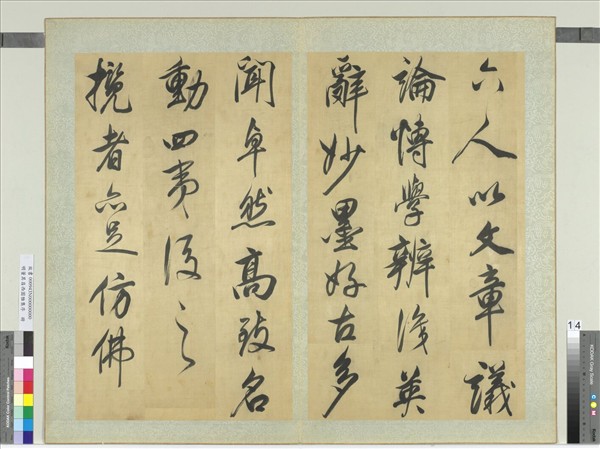 六人以文章議
論博學辨識英
辭妙墨好古多
聞卓然高致名
動四夷後之
攬者亦足仿佛
14